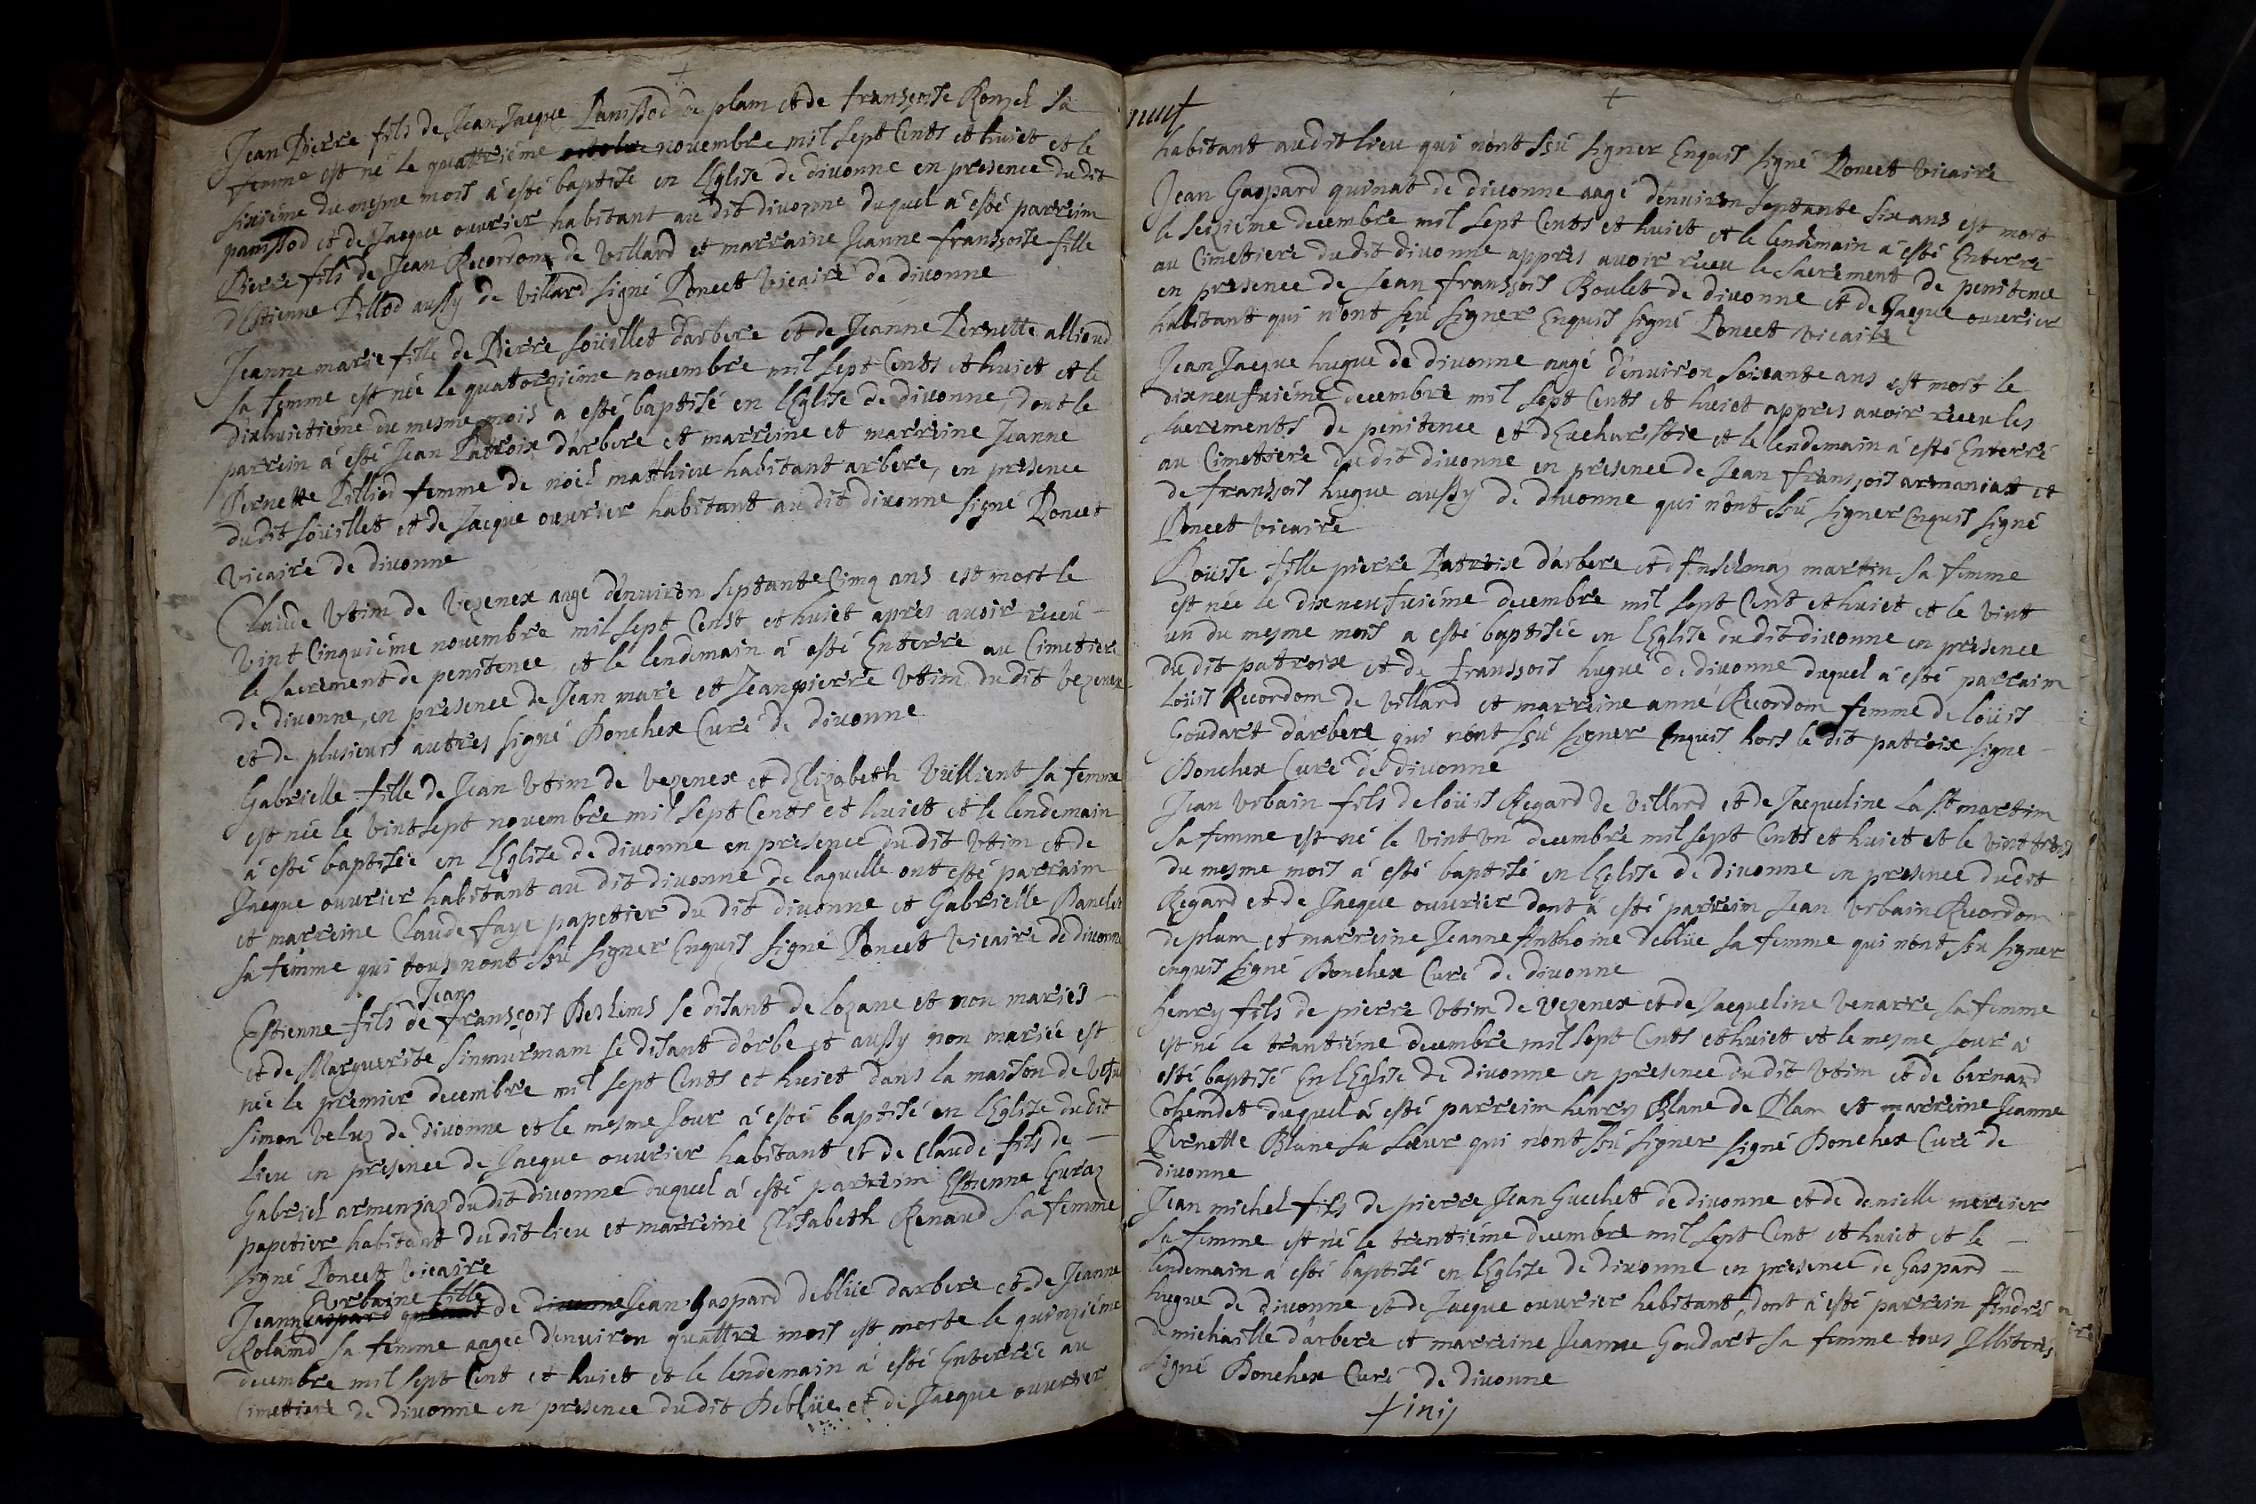 Jean Pierre fils de Jean Jaeque Panissod de plam et de fransçoise Ronzel sa
femme est né le quattriéme novembre mil sept Cents et huict et le
sixiéme du mesme mois à esté baptisé en l'Eglise de divonne en presence dudit
panissod et de Jaeque ouvrier habitant au dit divonne duquel à esté parreim
Pierre fils de Jean Recordom de villard et marraine Jeanne fransçoise fille
d'Estienne Pillod aussy de villard signé Poncet vicaire de divonne
Jeanne marie fille de Pierre soüillet d'arbere et de Jeanne Pernette alliond
sa femme est née le quatorziéme novembre mil sept Cents et huict et le
dixhuictiéme du mesme mois a esté baptisé en l'Eglise de divonne, dont le
parrein à esté Jean Patroix d'arbere et marreine et marreine Jeanne
Pernette Pilliod femme de noël matthieu habitant arbere, en presence
du dit soüillet et de Jacque ouvrier habitant au dit divonne signé Poncet
vicaire de divonne
Claude Vtim de Vezenex aagé d'environ septante Cimq ans est mort le
vint Cinquiéme novembre mil sept Censt et huict apres avoir receu
le sacrement de penitence et le lendemain à esté Enterré au Cimetiere
de divonne, en presence de Jean mare et Jean pierre Vtim du dit Vezenex
et de plusieurs autres signé Bonchex Curé de divonne
Gabrielle fille de Jean Vtim de Vezenex et d'Elizabeth Vüillient sa femme
est née le vintsept novembre mil sept Cents et huict et le lendemain
à esté baptisée en l'Eglise de divonne en presence du dit Vtim et de
Jaeque ouvrier habitant au dit divonne de laquelle ont esté parraim
et marreine Claude faye papetier du dit divonne et Gabrielle Banclet
sa femme qui tous n'ont sçu signer Enquis signé Poncet vicaire de divonne
Jean
Estienne fils de fransçois Beshims se disant de lozane et non mariés
et de Marguerite sinmurmam se disant d'orbe et aussy non mariée est
né le premier decembre mil sept Cents et huict dans la maison de
simon veluz de divonne et le mesme Jour à esté baptisé en l'Eglise dudit
lieu en presence de Jacque ouvrier habitant et de Claude fils de
Gabriel armenjaz du dit divonne duquel à esté parreim Estienne Guraz
papetier habitant du dit lieu et marreine Elisabeth Renaud sa femme
signé Poncet vicaire
urbaine fille
Jeanne de Jean Gaspard deblüe d'arbere et de Jeanne
Rolamd sa femme aagée d'environ quattre mois est morte le quinziéme
decembre mil sept Cent et huict et le lendemain à esté Enterrée au
Cimettiere de divonne en presence du dit Deblüe et de Jaeque ouvrier
habitant au dit lieu qui n'ont sçu signer Enquis signé Poncet vicaire
Jean Gaspard quinat de divonne aagé d'environ septante six ans est mort
le seiziéme decembre mil sept Cents et huict et le lendemain à esté Enterré
au Cimettiere du dit divonne appres avoir receu le sacrement de penitence
en presence de Jean fransçois Boulet de divonne et de Jaeque ouvrier
habitant qui n'ont sçu signer Enquis signé Poncet vicaire
Jean Jaeque hugue de divonne aagé d'environ soixante ans est mort le
dixneufviéme decembre mil sept Cents et huict appres avoir receu les
sacrements de penitence et d'Eucharistie et le lendemain à esté Enterré
au Cimettiere du dit divonne en presence de Jean fransçois armaniat et
de fransçois hugue aussy de divonne qui n'ont sçu signer Enquis signé
Poncet vicaire
Loüise fille pierre Patroix d'arbere et d'Anselmaz martin sa femme
est née le dixneufviéme decembre mil sept Cent et huict et le vint
un du mesme mois a esté baptisée en l'Eglise du dit divonne en presence
du dit patroix et de fransçois hugue de divonne duquel à esté parraim
Loüis Recordom de villard et marreine anne Recordom femme de loüis
Goudart d'arbere qui n'ont sçu signer Enquis hors le dit patroix signé
Bonchex Curé de divonne
Jean Vrbain fils de loüis Regard de villard et de Jacqueline La st martim
sa femme est né le vint Vn decembre mil sept Cents et huict et le vint trois
du mesme mois à esté baptisé en l'Eglise de divonne en presence dudit
Regard et de Jaeque ouvrier dont à esté parreim Jean Vrbain Recordom
de plam et marreine Jeanne Anthoine deblüe sa femme qui n'ont sçu signer
enquis signé Bonchex Curé de divonne
henry fils de pierre Vtim de Vezenex et de Jacqueline venarre sa femme
est né le trantiéme decembre mil sept Cents et huict et le mesme Jour a
esté baptisé En l'Eglise de divonne en presence du dit Vtim et de bernard
Cohendet duquel à esté parreim henry Blanc de Plam et marreine Jeanne
Pernette Blanc sa sœur qui n'ont sçu signer signé Bonchex Curé de
divonne
Jean michel fils de pierre Jean Guechett de divonne et de denielle mercier
sa femme est né le trentiéme decembre mil sept Cent et huict et le
lendemain à esté baptisé en l'Eglise de divonne en presence de Gaspard
hugue de divonne et de Jacque ouvrier habitant, dont à esté parrein André
michaille d'arbere et marreine Jeanne Goudart sa femme tous Illiterés
signé Bonchex Curé de divonne
finis